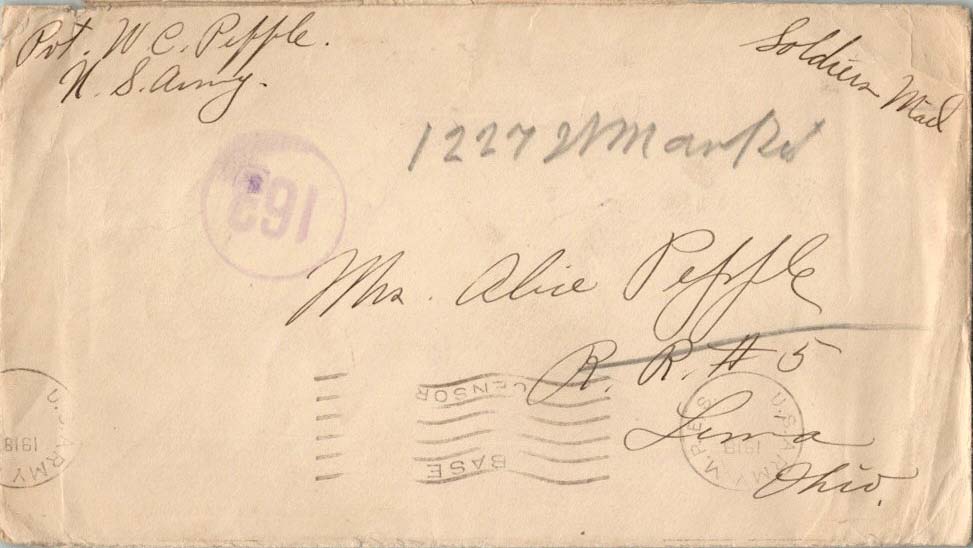 Pvt. W. C. Pepple.
U. S. Army.
Soldiers Mail
1227 W Market
163
Mrs. Alice Pepple
R. R. # 5
Lima
Ohio.
CENSOR
BASE
U.S. ARMY
1918
U.S. ARMY M.P.E.S.
1918